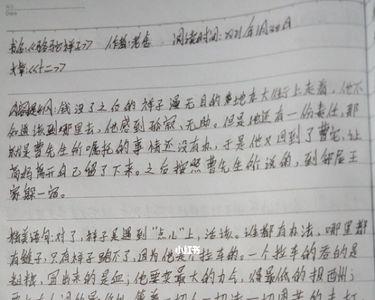 书名:《骆驼祥子》 作者:老舍 阅读时间:2021年1月28日
章:《十二》
内容梗概:钱没了之后的祥子漫无目的地在大街上走着,他不
知道该到哪里去,他感到孤寂,无助。但是他还有一份责任,那
就是曹先生的嘱托的事情还没有办,于是他又回到了曹宅,让
高妈离开自己留了下来。之后按照曹先生所说的,到邻居王
家歇一宿。
精美语句:对了,祥子是遇到“点儿”上,活该。谁都有办法,哪里都
有缝子,只有祥子跑不了,因为他是个拉车的。一个拉车的吞的是
粗粮,冒出来的是血;他要卖最大的力气,得最低的报酬;
小红书